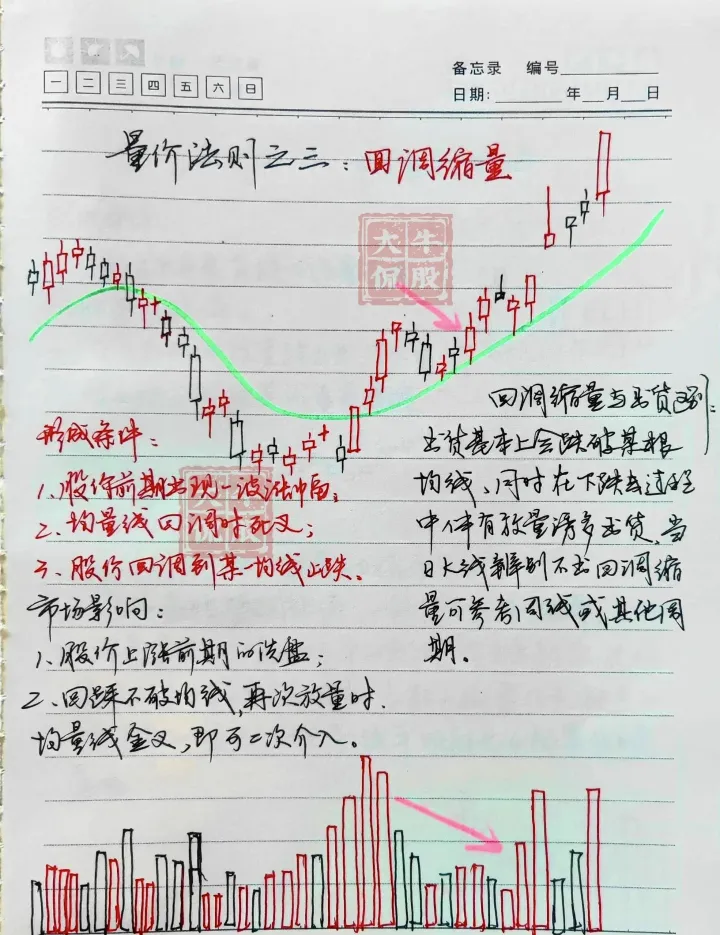 一 二 三 四 五 六 日
备忘录 编号
日期: 年 月 日
量价法则之三：回调缩量
大牛
侃股
形成条件：
1、股价前期出现一波涨幅；
2、均量线回调时死叉；
3、股价回调到某一均线止跌。
大牛
侃股
市场影响：
1、股价上涨前期的洗盘；
2、回踩不破均线，再次放量时，
均量线金叉，即可二次介入。
回调缩量与出货区别：
出货基本上会跌破某根
均线、同时在下跌去过程
中伴有放量诱多出货，当
日K线辨别不出回调缩
量可参考周线或其他周
期。